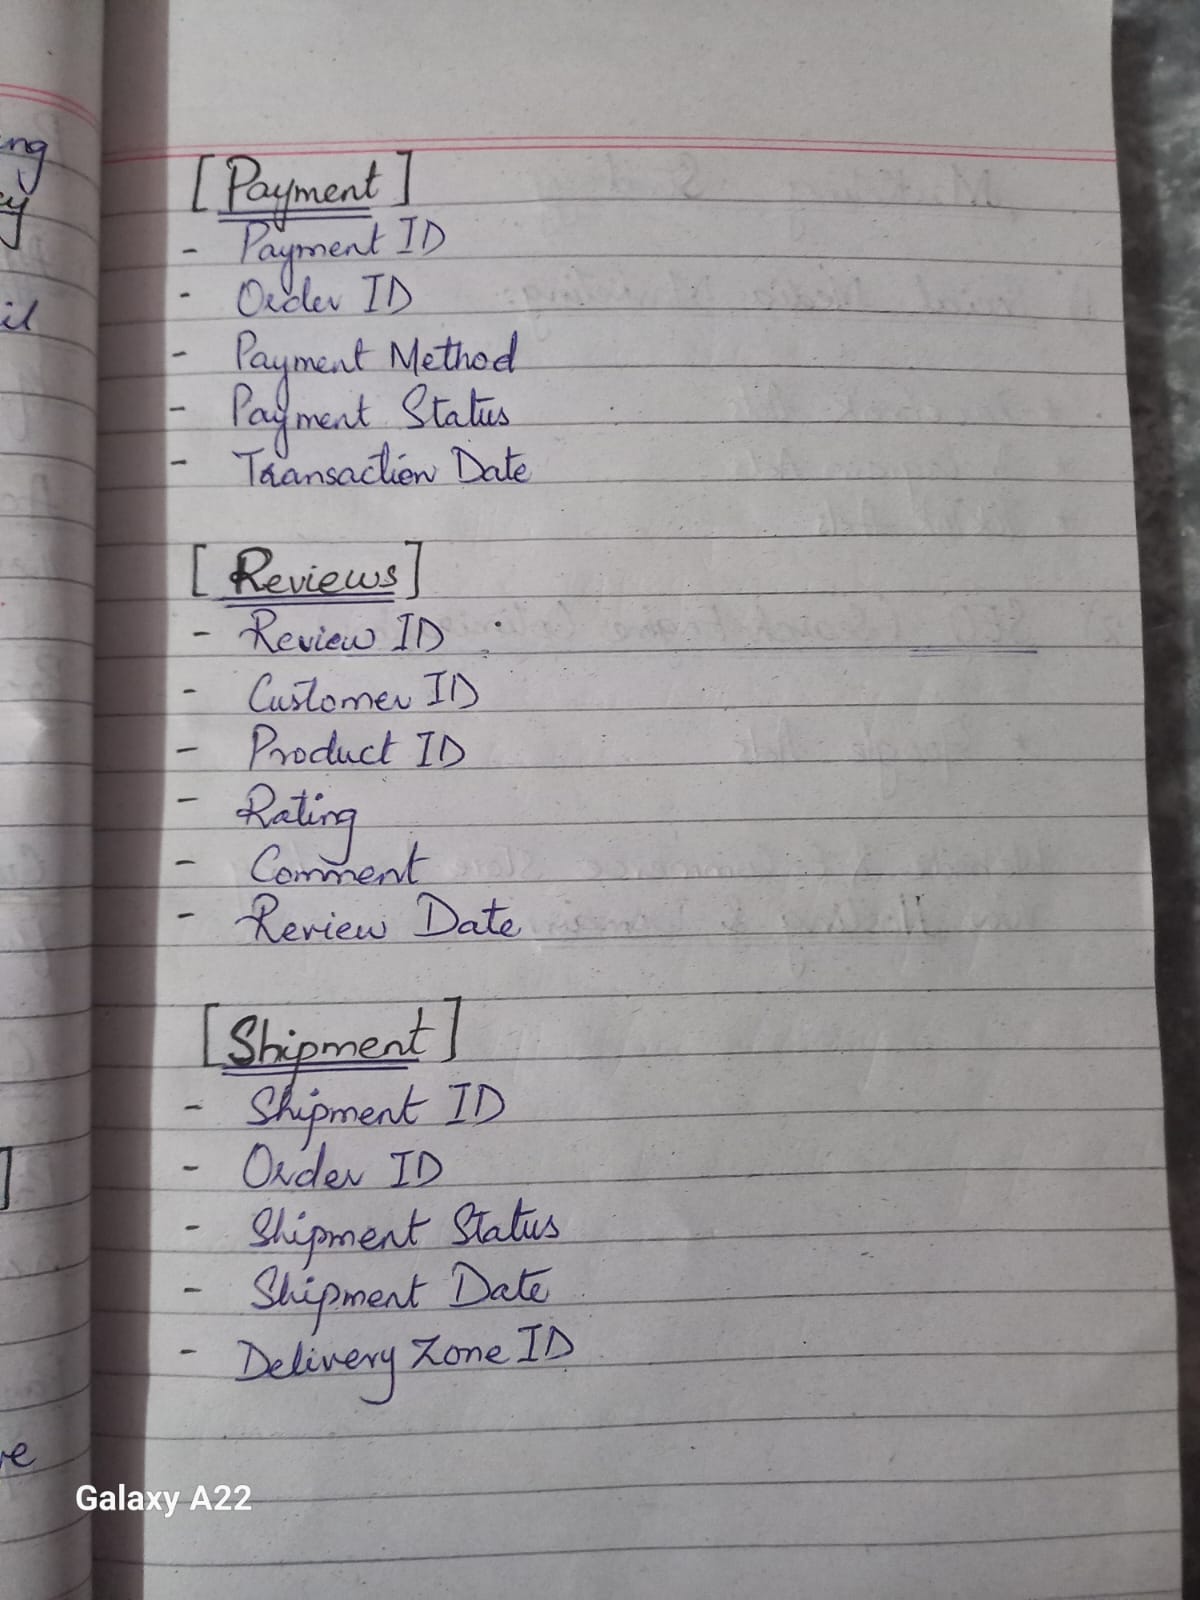 [Payment]
- Payment ID
- Order ID
- Payment Method
- Payment Status
- Transaction Date
[Reviews]
- Review ID
- Customer ID
- Product ID
- Rating
- Comment
- Review Date
[Shipment]
- Shipment ID
- Order ID
- Shipment Status
- Shipment Date
- Delivery Zone ID
Galaxy A22